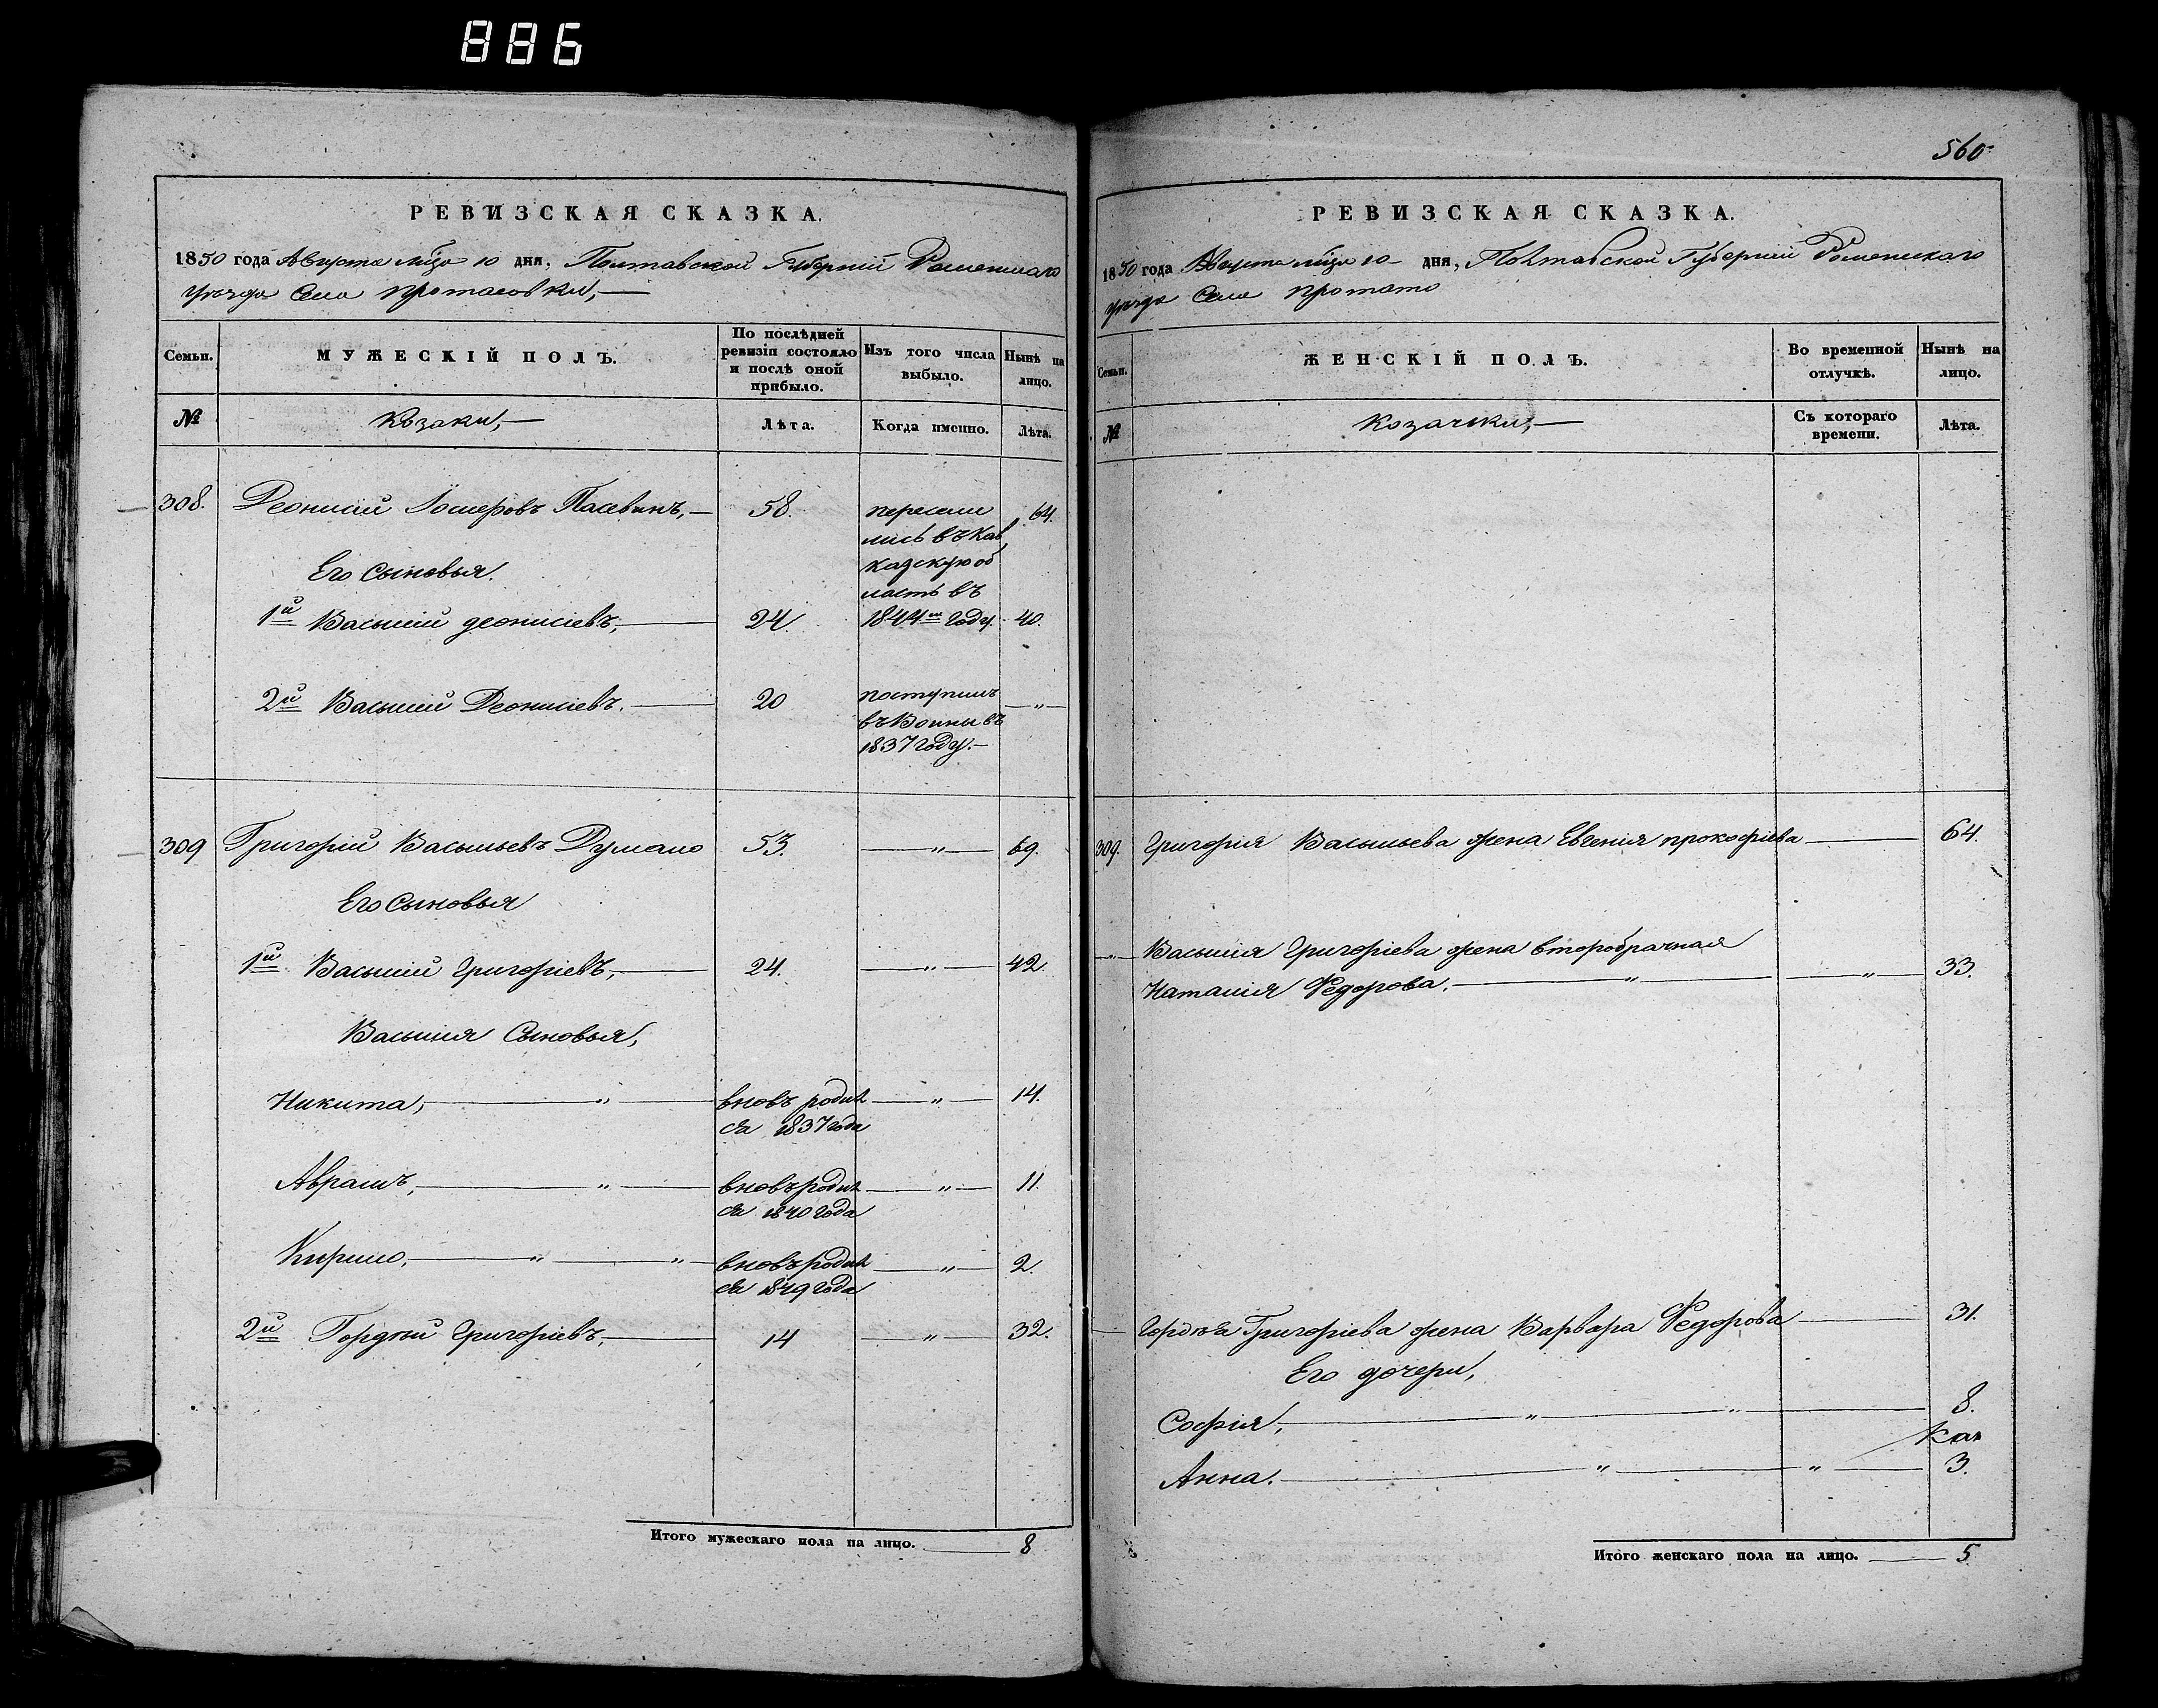 886
560
РЕВИЗСКАЯ СКАЗКА.
1850 года Августа мца 10 дня, Полтавской Губернiи Роменскаго
уезда Села Протасовки,
Семьи.
МУЖЕСКІЙ ПОЛЪ.
По послѣдней ревизіи состояло и послѣ оной прибыло.
Изъ того числа выбыло.
Нынѣ на лицо.
№
Козаки,
Лѣта.
Когда именно.
Лѣта.
308. Деонисий 58. пересели 64.
лись въ Кав
Его Сыновья. казскую об
ласть въ
1й Василий деонисіевъ, 24. 1844м году. 40.
2й Василий Деонисіевъ. 20 поступилъ „
въ Воины въ
1837 году.
309 Григорій Васильевъ 53. „ 69.
Его Сыновья
1й Василий Григоріевъ, 24. „ 42.
Василия Сыновья,
Никита, „ вновь родил „ 14.
ся 1837 года
Аврамъ, „ вновь родил „ 11.
ся 1840 года
Кирило, „ „ вновь родил „ 2.
ся 1849 года
2й Гордѣй Григоріевъ, 14 „ 32.
Итого мужескаго пола на лицо. 8
РЕВИЗСКАЯ СКАЗКА.
1850 года Августа мца 10 дня, Полтавской Губерніи Роменскаго
уезда Села Протасо
Семьи.
ЖЕНСКІЙ ПОЛЪ.
Во временной отлучкѣ.
Нынѣ на лицо.
№
Козачки,
Съ котораго времени.
Лѣта.
309. Григорія Васильева жена Евгенія прокофіева 64.
„ Василия Григоріева жена второбрачная
Наталия Федорова. „ „ 33.
Гордѣя Григоріева жена Варвара Федорова 31.
Его дочери,
Софія, „ „ 8.
Анна. „ „ 3.
Итого женскаго пола на лицо. 5